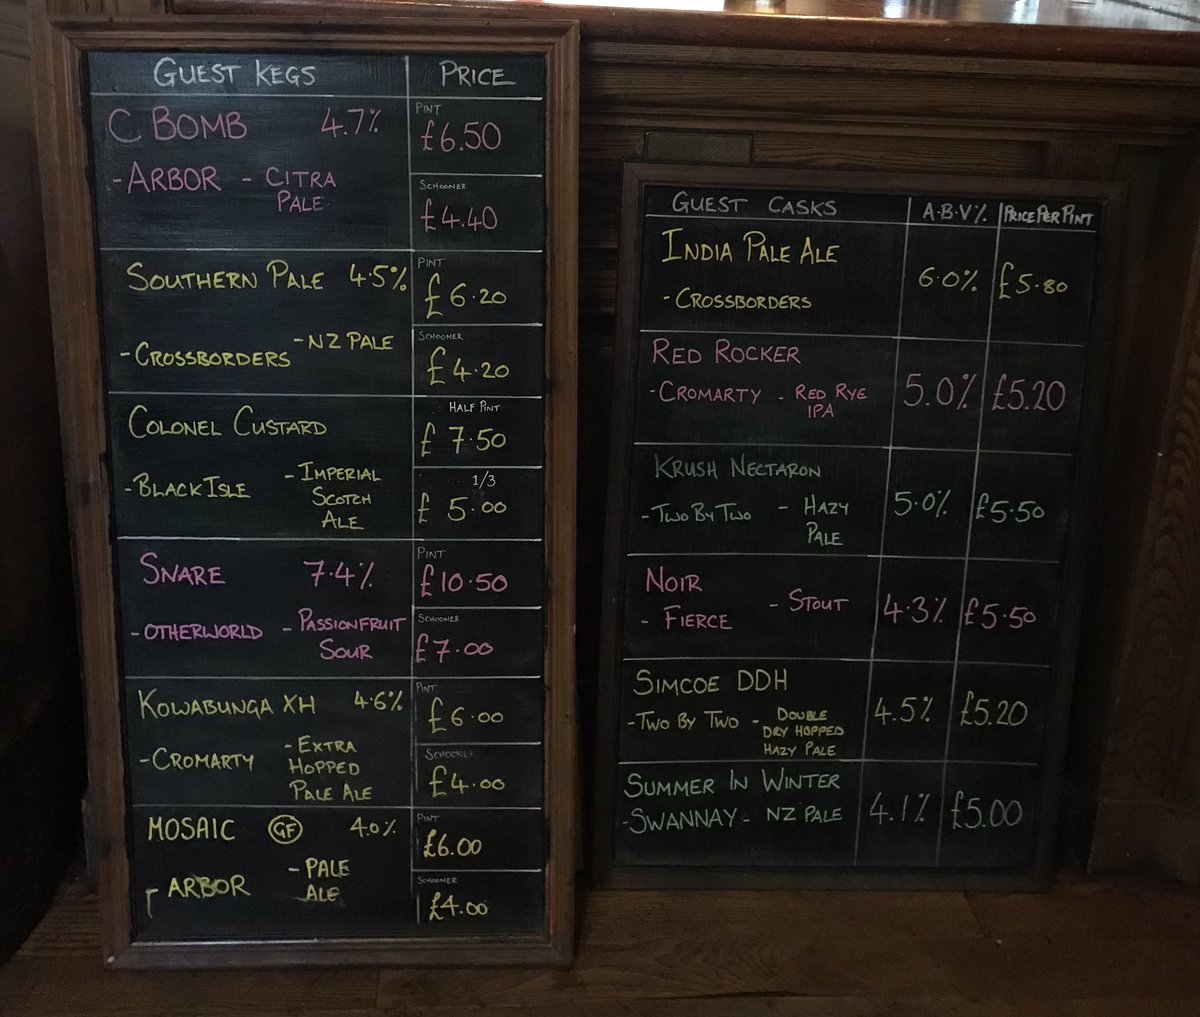 GUEST KEGS PRICE
C BOMB 4.7% PINT £6.50
- ARBOR - CITRA PALE SCHOONER £4.40
SOUTHERN PALE 4.5% PINT £6.20
- CROSSBORDERS - NZ PALE SCHOONER £4.20
COLONEL CUSTARD HALF PINT £7.50
- BLACK ISLE - IMPERIAL SCOTCH ALE 1/3 £5.00
SNARE 7.4% PINT £10.50
- OTHERWORLD - PASSIONFRUIT SOUR SCHOONER £7.00
KOWABUNGA XH 4.6% PINT £6.00
- CROMARTY - EXTRA HOPPED PALE ALE SCHOONER £4.00
MOSAIC GF 4.0% PINT £6.00
- ARBOR - PALE ALE SCHOONER £4.00
GUEST CASKS A.B.V% PRICE PER PINT
INDIA PALE ALE 6.0% £5.80
- CROSSBORDERS
RED ROCKER 5.0% £5.20
- CROMARTY - RED RYE IPA
KRUSH NECTARON 5.0% £5.50
- TWO BY TWO - HAZY PALE
NOIR 4.3% £5.50
- FIERCE - STOUT
SIMCOE DDH 4.5% £5.20
- TWO BY TWO - DOUBLE DRY HOPPED HAZY PALE
SUMMER IN WINTER 4.1% £5.00
- SWANNAY - NZ PALE